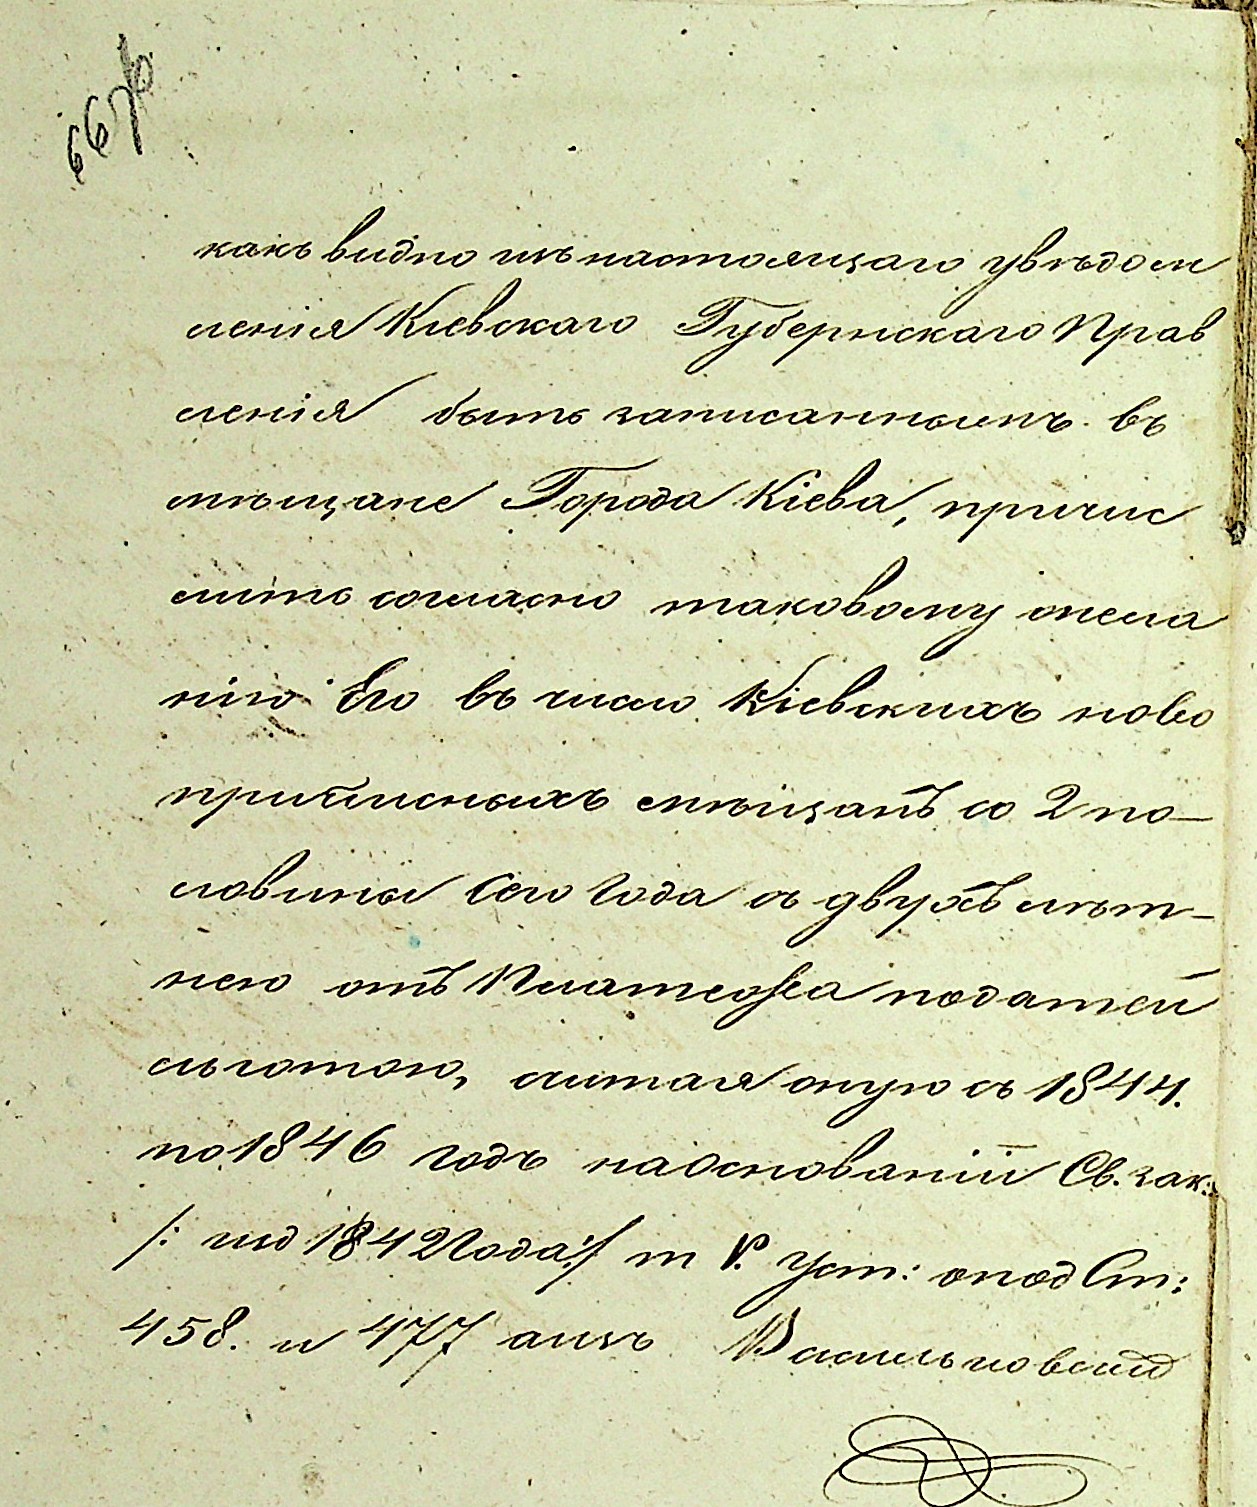 667
какъ видно изъ настоящаго увѣдом
ленія Кіевскаго Губернскаго Прав
ленія быть записаннымъ въ
мѣщане Города Кіева, причис
лить согласно таковому жела
нію Его въ число Кіевскихъ ново
приписныхъ мѣщанъ со 2 по-
ловины Сего Года съ двухъ лѣт-
нею отъ Платежа податей
льготою, считая оную съ 1844.
по 1846 годъ на основаніи Св. зак:
/: изд 1842 Года :/ т V. Уст: о под Ст:
458. и 477 а изъ Васильковскій